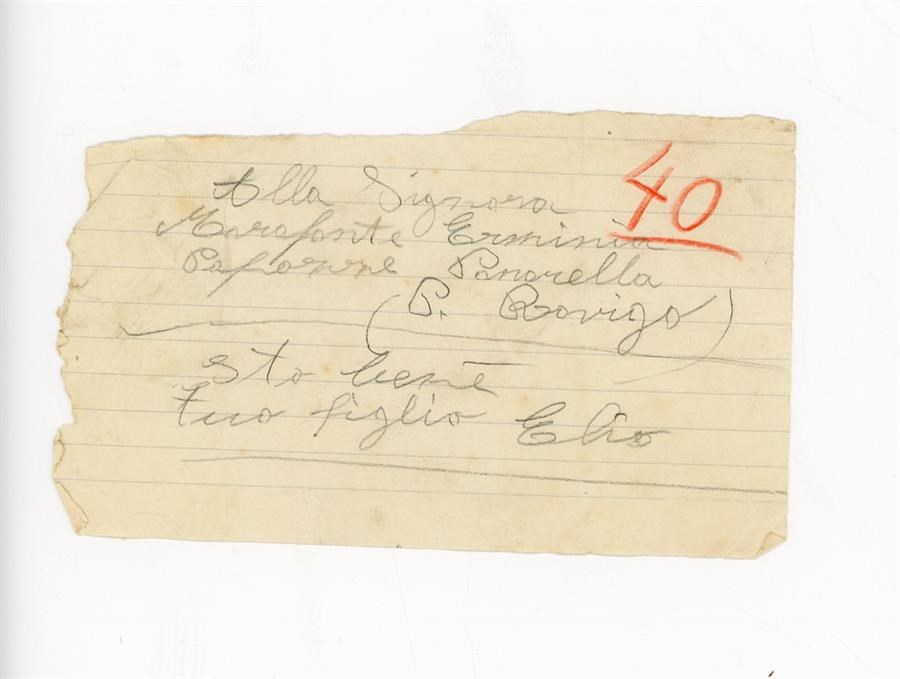 40
Alla Signora
Marafante Erminia
Papozze Panarella
(P. Rovigo)
Sto bene
tuo figlio Elio